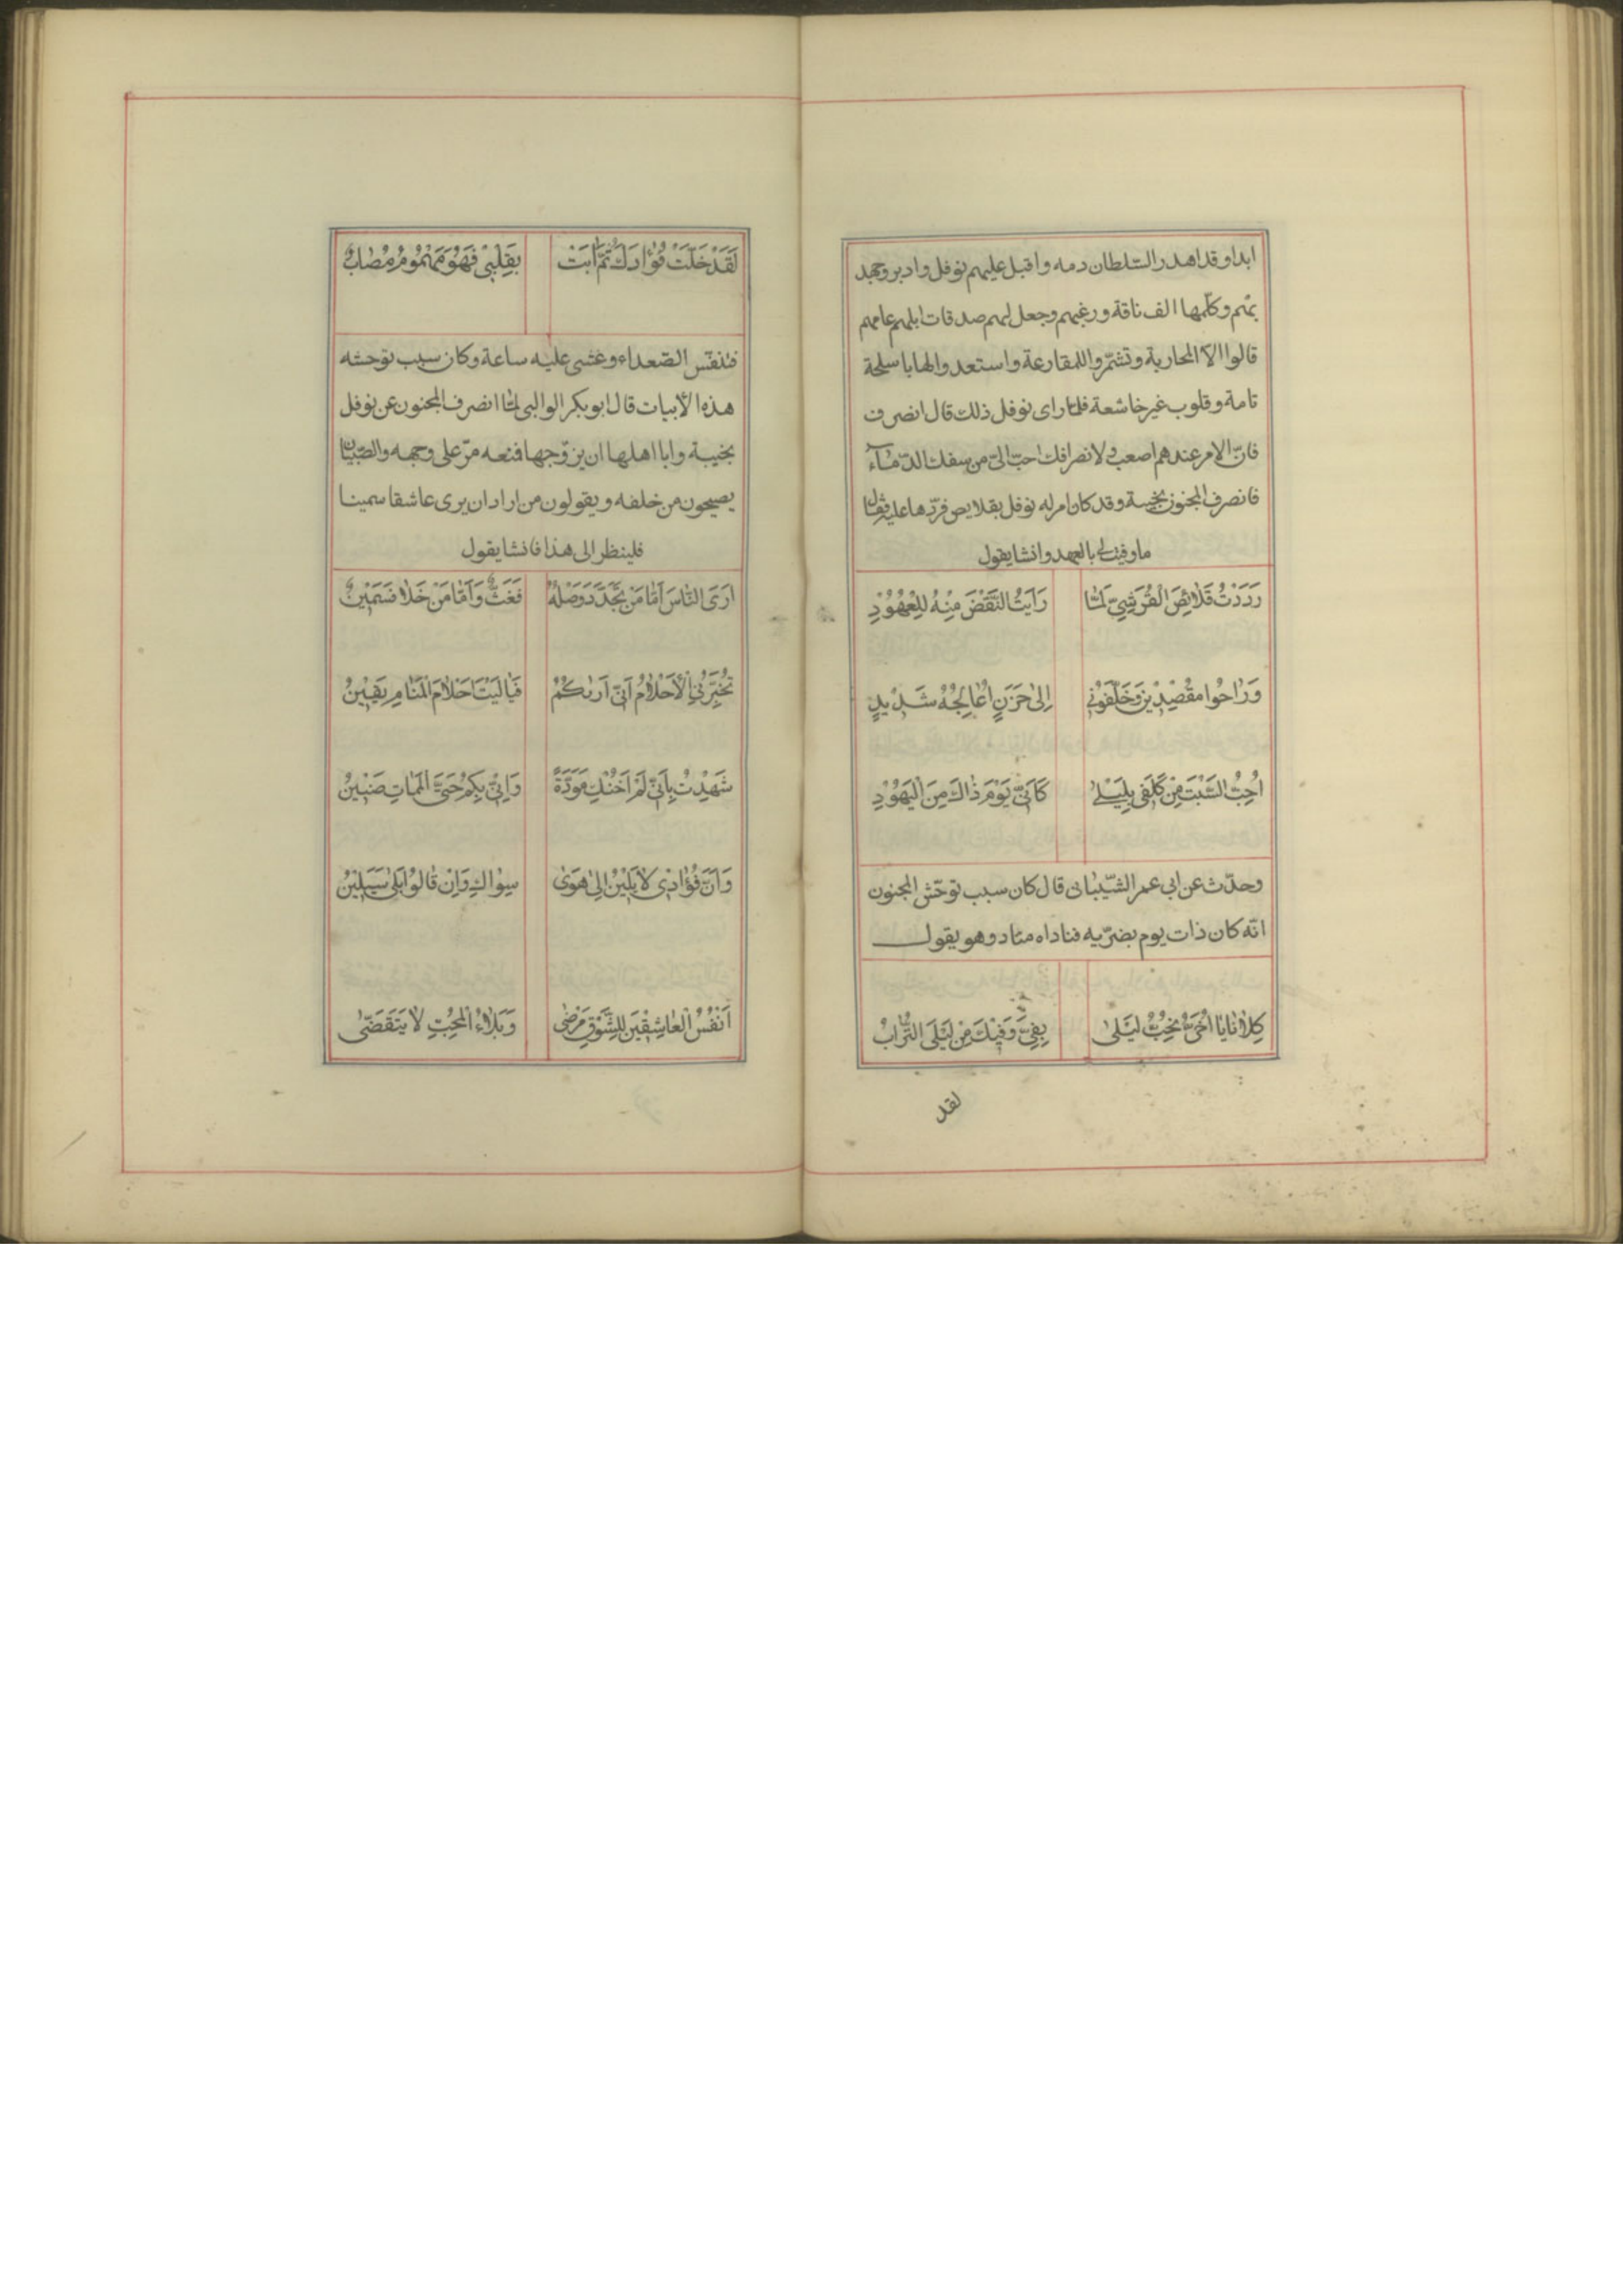 ابدا وقد اهدر السّلطان دمه واقبل عليهم نوفل وادبر وجهد
بهم وكلّمها الف ناقة ورغبهم وجعل لهم صدقات ابلهم عامهم
قالوا الا المحاربة وتشمّروا للمقارعة واستعدوا لها باسلحة
تامة وقلوب غير خاشعة فلمّا راى نوفل ذلك قال انصرف
فانّ الامر عندهم اصعب ولانصرافك احبّ الىّ من سفك الدّماء
فانصرف المجنون بخيبة وقد كان امر له نوفل بقلايص فردّها عليه وقال
ما وفيت لى بالعهد وانشا يقول
رَدَدْتُ قَلَائِصَ الْقُرَشِيِّ لَمَّا رَاَيْتُ النَّقْضَ مِنْهُ لِلْعُهُوْدِ
وَرَاحُوا مقْصِدِيْنَ وَخَلَّفُوْنِي اِلىٰ حَزَنٍ اُعَالِجُهُ شَدِيدٍ
اُحِبُّ السَّبْتَ مِنْ كَلَفى بِلَيْلىٰ كَاَنّى يَوْمَ ذَاكَ مِنَ الْيَهُوْدِ
وحدّث عن ابى عمر الشّيبانى قال كان سبب توحّش المجنون
انّه كان ذات يوم بضرّيه فناداه مناد وهو يقول
كِلَانَا يَا اُخَىَّ يُحِبُّ لَيْلىٰ بِفِىَّ وَفِيْكَ مِنْ لَيْلَى التُّرَابُ
لقد
لَقَدْ خَبَلَتْ فُؤَادَكَ ثُمَّ اَبَتْ بِقَلْبِىْ فَهُوَ مَهْمُوْمٌ مُصَابٌ
فتنفّس الصّعداء وغشى عليه ساعة وكان سبب توحشه
هذه الأبيات قال ابو بكر الوالبى لمّا انصرف المجنون عن نوفل
بخيبة وابا اهلها ان يزوّجها فنعه مرّ على وجهه والصّبيان
يصيحون من خلفه ويقولون من اراد ان يرى عاشقا سمينا
فلينظر الى هذا فانشا يقول
اَرَى النَّاسَ اَمَّا مَنْ تَجَدَّدَ وَصْلُهُ فَغَثٌّ وَاَمَّا مَنْ خَلَا فَسَمِيْنٌ
تُخَبِّرُنِى الْأَحْلَامُ اَنّى اَرٰىكُمُ فَيَا لَيْتَ اَحْلَامَ الْمَنَامِ يَقِيْنُ
شَهِدْتُ بِاَنّى لَمْ اَخُنْكِ مَوَدَّةً وَاِنّى بِكُمْ حَتَّى الْمَمَاتِ ضَنِيْنُ
وَاَنَّ فُؤَادِى لَا يَلِيْنُ اِلىٰ هَوًى سِوَاكِ وَاِنْ قَالُوا بَلىٰ سَيَلِيْنُ
اَنْفُسُ الْعَاشِقِيْنَ لِلشَّوْقِ مَرْضىٰ وَبَلَاءُ الْمُحِبِّ لَا يَتَقَضّىٰ